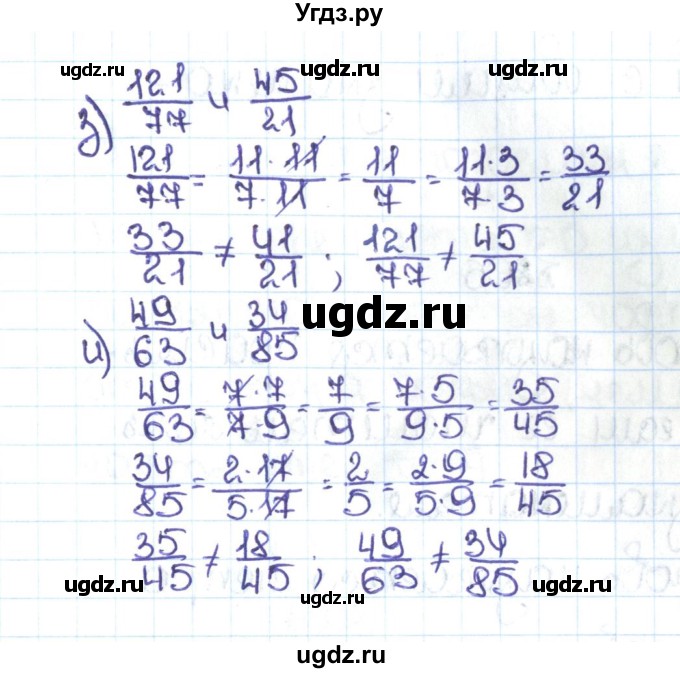 Угдз.ру
ugdz.ru ugdz.ru ugdz.ru
з) 121/77 и 45/21
121/77 = 11·11/7·11 = 11/7 = 11·3/7·3 = 33/21
33/21 ≠ 41/21 ; 121/77 ≠ 45/21
ugdz.ru
и) 49/63 и 34/85
ugdz.ru ugdz.ru
49/63 = 7·7/7·9 = 7/9 = 7·5/9·5 = 35/45
34/85 = 2·17/5·17 = 2/5 = 2·9/5·9 = 18/45
35/45 ≠ 18/45 ; 49/63 ≠ 34/85
ugdz.ru ugdz.ru
ugdz.ru
ugdz.ru